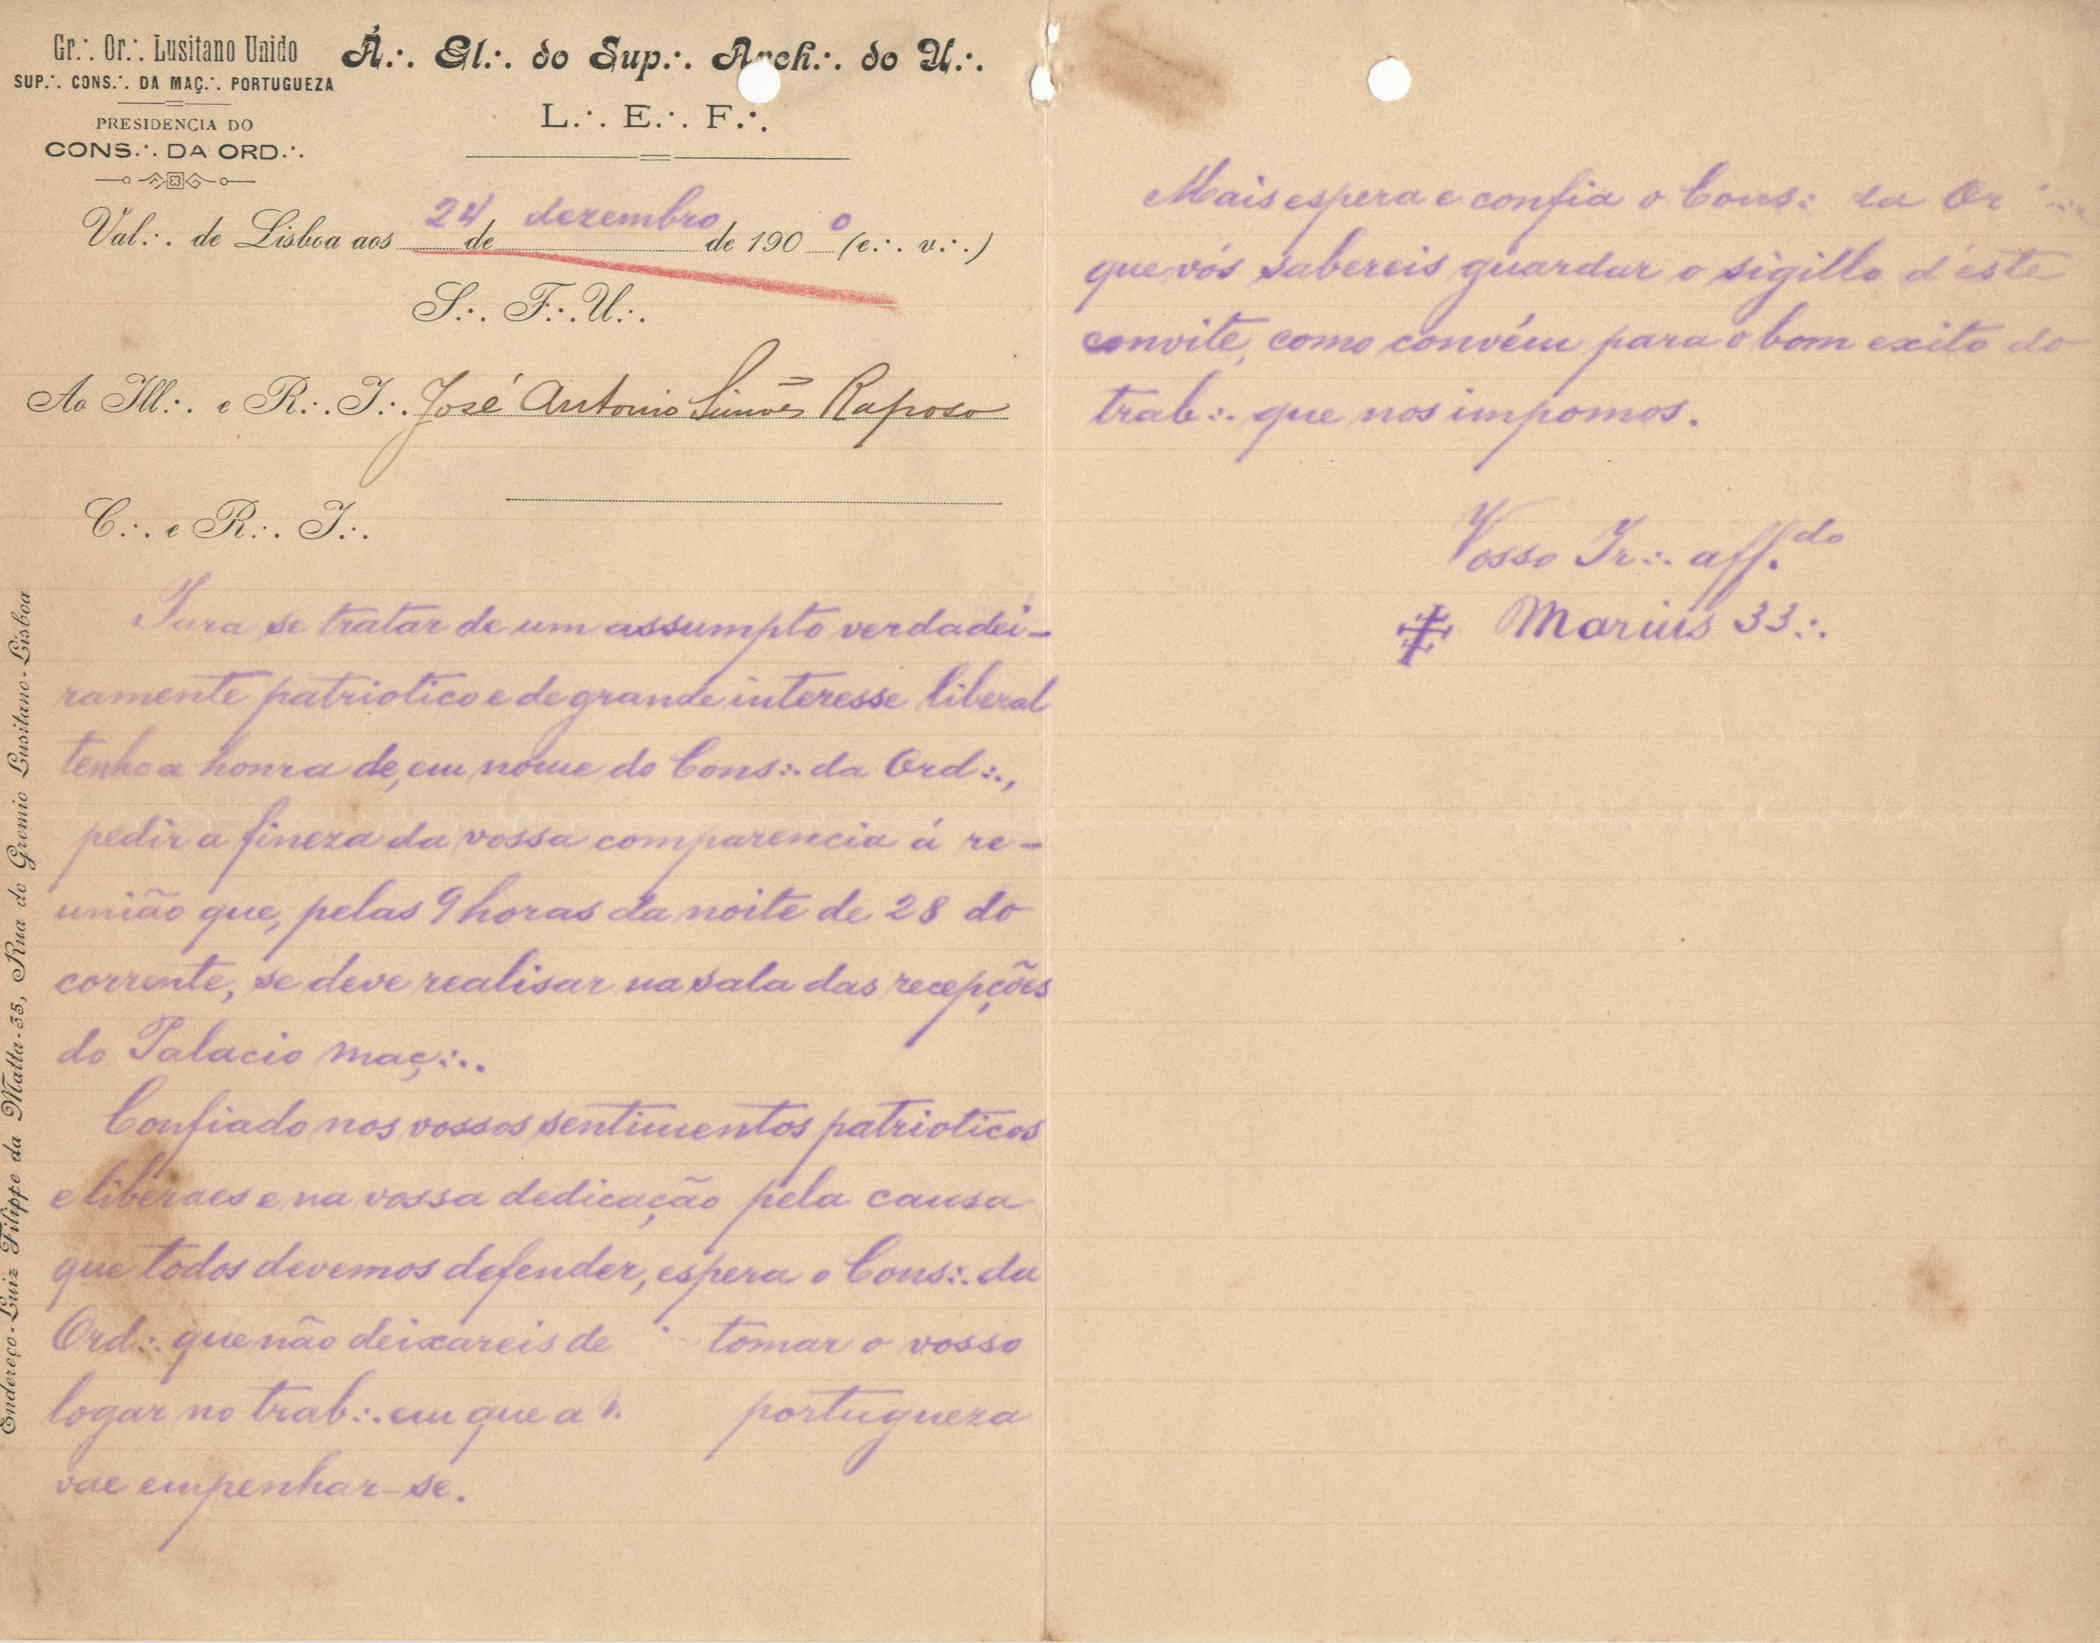 Gr.·. Or.·. Lusitano Unido
SUP.·. CONS.·. DA MAÇ.·. PORTUGUEZA
PRESIDENCIA DO
CONS.·. DA ORD.·.
Á.·. Gl.·. do Sup.·. Arch.·. do U.·.
L.·. E.·. F.·.
Val.·. de Lisboa aos 24 de dezembro de 1900 (e.·. v.·.)
S.·. F.·. U.·.
Ao Ill.·. e R.·. I.·. José Antonio Simões Raposo
C.·. e R.·. I.·.
Para se tratar de um assumpto verdadei-
ramente patriotico e de grande interesse liberal
tenho a honra de, em nome do Cons.·. da Ord.·.,
pedir a fineza da vossa comparencia á re-
união que, pelas 9 horas da noite de 28 do
corrente, se deve realisar na sala das recepções
do Palacio maç.·..
Confiado nos vossos sentimentos patrioticos
e liberaes e na vossa dedicação pela causa
que todos devemos defender, espera o Cons.·. da
Ord.·. que não deixareis de tomar o vosso
logar no trab.·. em que a portugueza
vae empenhar-se.
Endereço-Luiz Filippe da Matta-35, Rua do Gremio Lusitano-Lisboa
Mais espera e confia o Cons.·. da Or
que vós sabereis guardar o sigillo d'este
convite, como convém para o bom exito do
trab.·. que nos impomos.
Vosso Ir.·. aff.do
Marius 33.·.